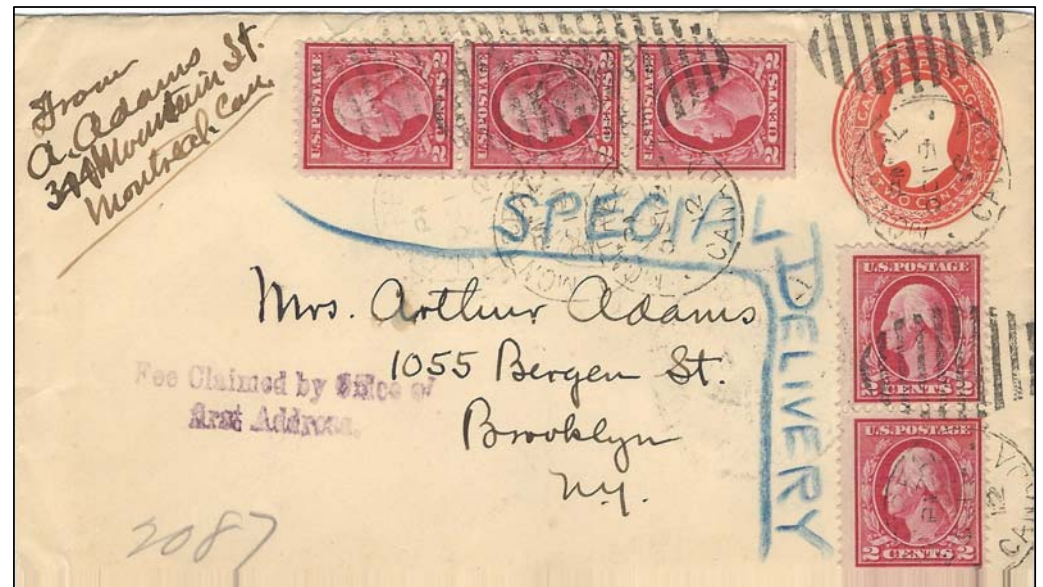 From
A. Adams
344 Mountain St.
Montreal Can.
U.S. POSTAGE
2 CENTS 2
U.S. POSTAGE
2 CENTS 2
U.S. POSTAGE
2 CENTS 2
CANADA POSTAGE
TWO CENTS
SPECIAL
DELIVERY
U.S. POSTAGE
2 CENTS 2
U.S. POSTAGE
2 CENTS 2
Mrs. Arthur Adams
1055 Bergen St.
Brooklyn
N.Y.
Fee Claimed by Office of
First Address.
2087